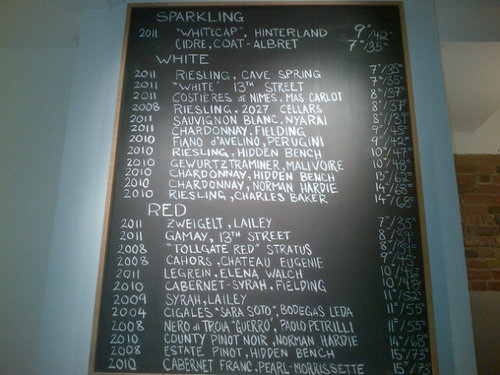 SPARKLING
2011 "WHITECAP", HINTERLAND 9"/42"
CIDRE, COAT-ALBRET 7"/35"
WHITE
2011 RIESLING, CAVE SPRING 7"/35"
2011 "WHITE" 13TH STREET 7"/35"
2011 COSTIÈRES de NIMES, MAS CARLOT 8"/37"
2008 RIESLING, 2027 CELLARS 8"/37
2011 SAUVIGNON BLANC, NYARAI 8"/39"
2011 CHARDONNAY, FIELDING 9"/45"
2010 FIANO d'AVELINO, PERUGINI 9"/42"
2010 RIESLING, HIDDEN BENCH 10"/47"
2010 GEWÜRTZTRAMINER, MALIVOIRE 10"/48"
2010 CHARDONNAY, HIDDEN BENCH 13"/63"
2010 CHARDONNAY, NORMAN HARDIE 14"/68"
2010 RIESLING, CHARLES BAKER 14"/68"
RED
2011 ZWEIGELT, LAILEY 7"/35"
2011 GAMAY, 13TH STREET
2008 "TOLLGATE RED" STRATUS
2008 CAHORS, CHATEAU EUGENIE
2011 LEGREIN, ELENA WALCH
2010 CABERNET-SYRAH, FIELDING
2009 SYRAH, LAILEY 11"/52"
2004 CIGALES "SARA SOTO", BODEGAS LEDA 11"/55"
2008 NERO di TROIA "GUERRO", PAOLO PETRILLI 11"/55"
2010 COUNTY PINOT NOIR, NORMAN HARDIE 14"/68"
2008 ESTATE PINOT, HIDDEN BENCH 15"/73"
2010 CABERNET FRANC, PEARL-MORRISSETTE 15"/73"